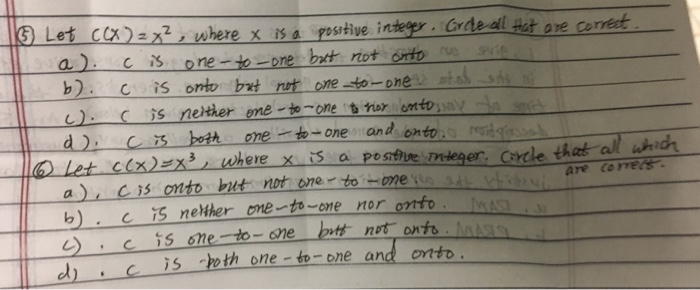 ⑤ Let C(X) = x², where x is a positive integer. Circle all that are correct.
a). C is one-to-one but not onto
b). C is onto but not one-to-one
c). C is neither one-to-one nor onto.
d). C is both one-to-one and onto.
⑥ Let C(x) = x³, where x is a positive integer. Circle that all which are correct.
a). C is onto but not one-to-one
b). C is neither one-to-one nor onto.
c). C is one-to-one but not onto.
d). C is both one-to-one and onto.